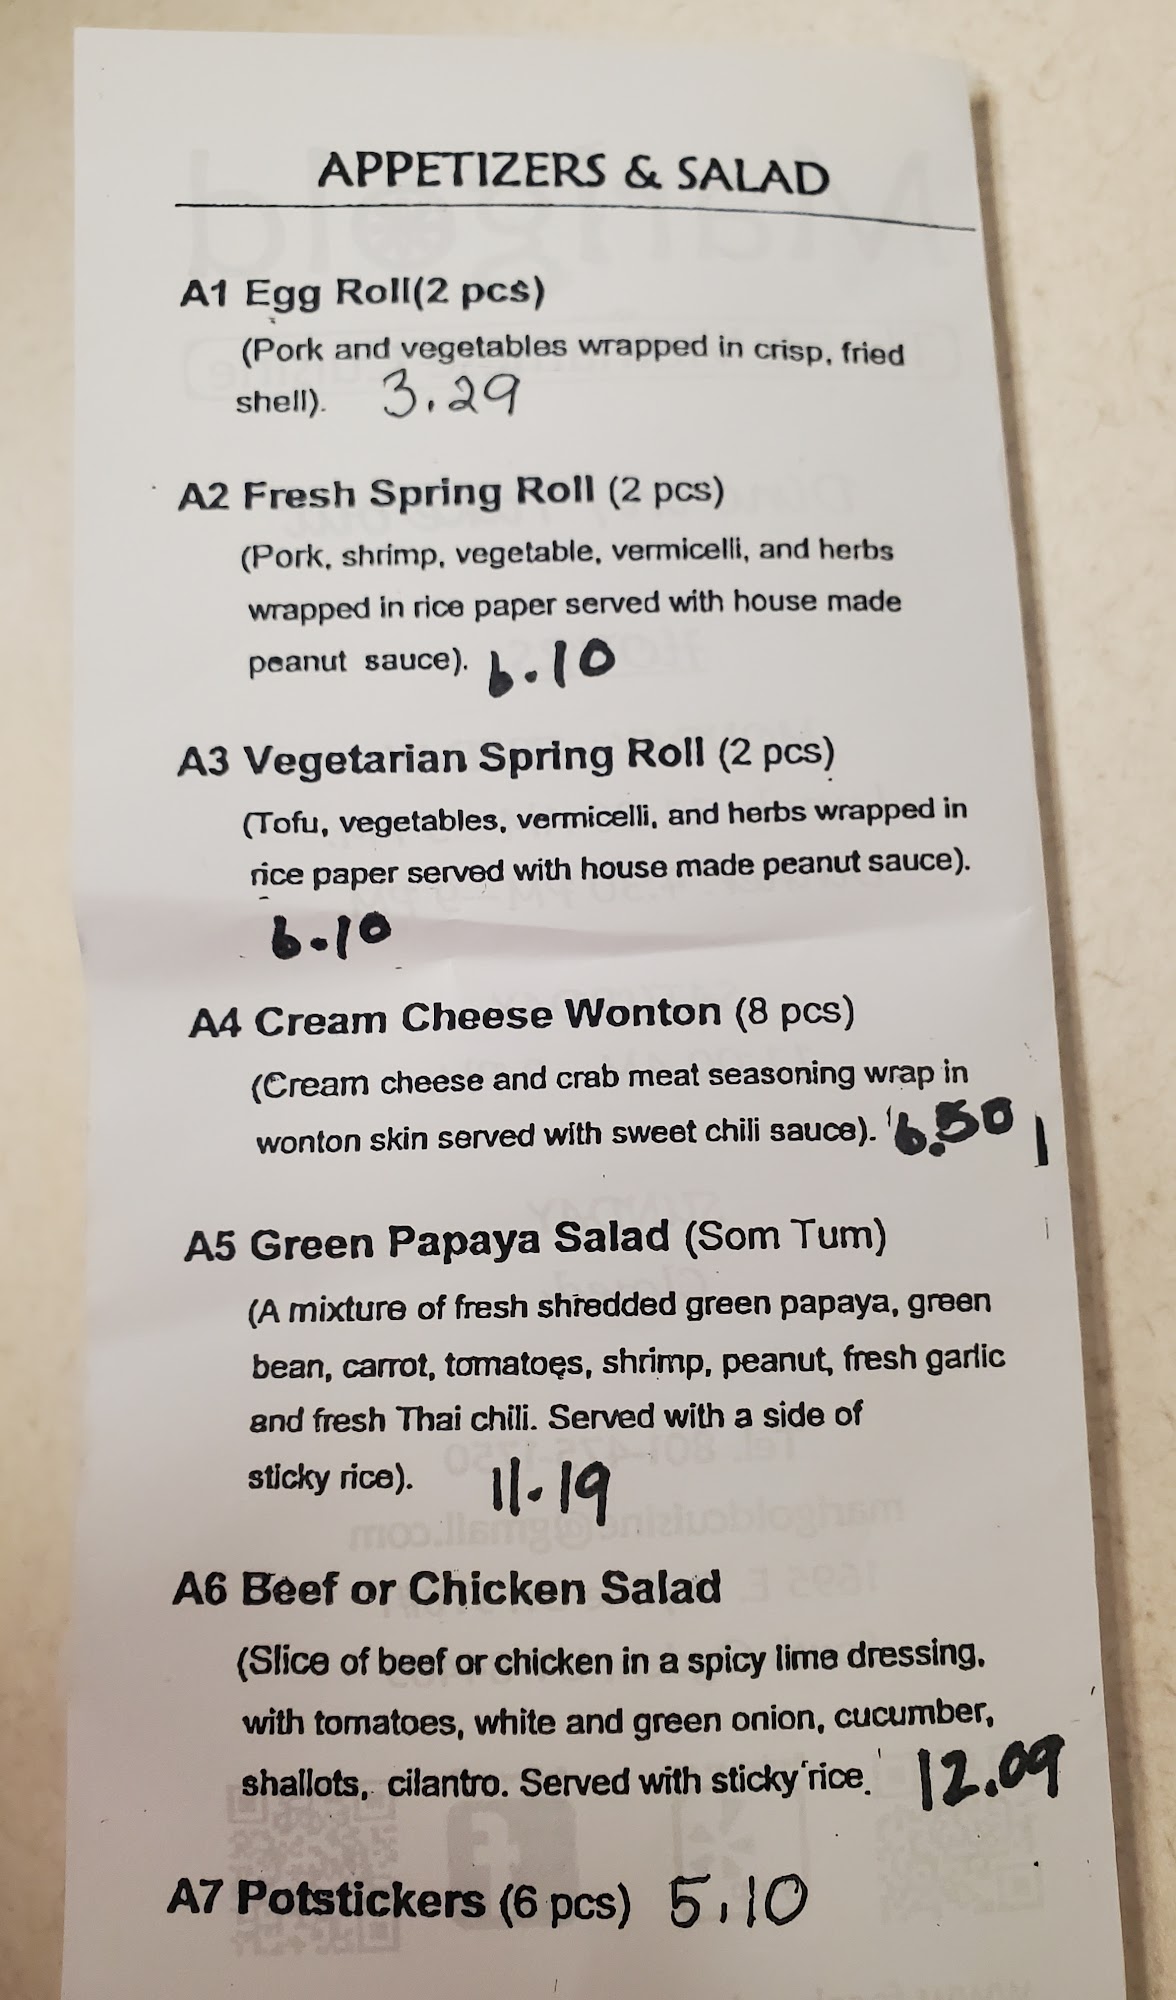 APPETIZERS & SALAD
A1 Egg Roll(2 pcs)
(Pork and vegetables wrapped in crisp, fried
shell). 3.29
A2 Fresh Spring Roll (2 pcs)
(Pork, shrimp, vegetable, vermicelli, and herbs
wrapped in rice paper served with house made
peanut sauce). 6.10
A3 Vegetarian Spring Roll (2 pcs)
(Tofu, vegetables, vermicelli, and herbs wrapped in
rice paper served with house made peanut sauce).
6.10
A4 Cream Cheese Wonton (8 pcs)
(Cream cheese and crab meat seasoning wrap in
wonton skin served with sweet chili sauce). 6.50
A5 Green Papaya Salad (Som Tum)
(A mixture of fresh shredded green papaya, green
bean, carrot, tomatoes, shrimp, peanut, fresh garlic
and fresh Thai chili. Served with a side of
sticky rice). 11.19
A6 Beef or Chicken Salad
(Slice of beef or chicken in a spicy lime dressing,
with tomatoes, white and green onion, cucumber,
shallots, cilantro. Served with sticky rice. 12.09
A7 Potstickers (6 pcs) 5.10